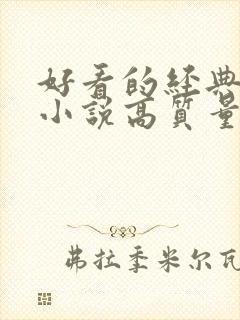 好看的经典
小説高質量
弗拉季米尔瓦